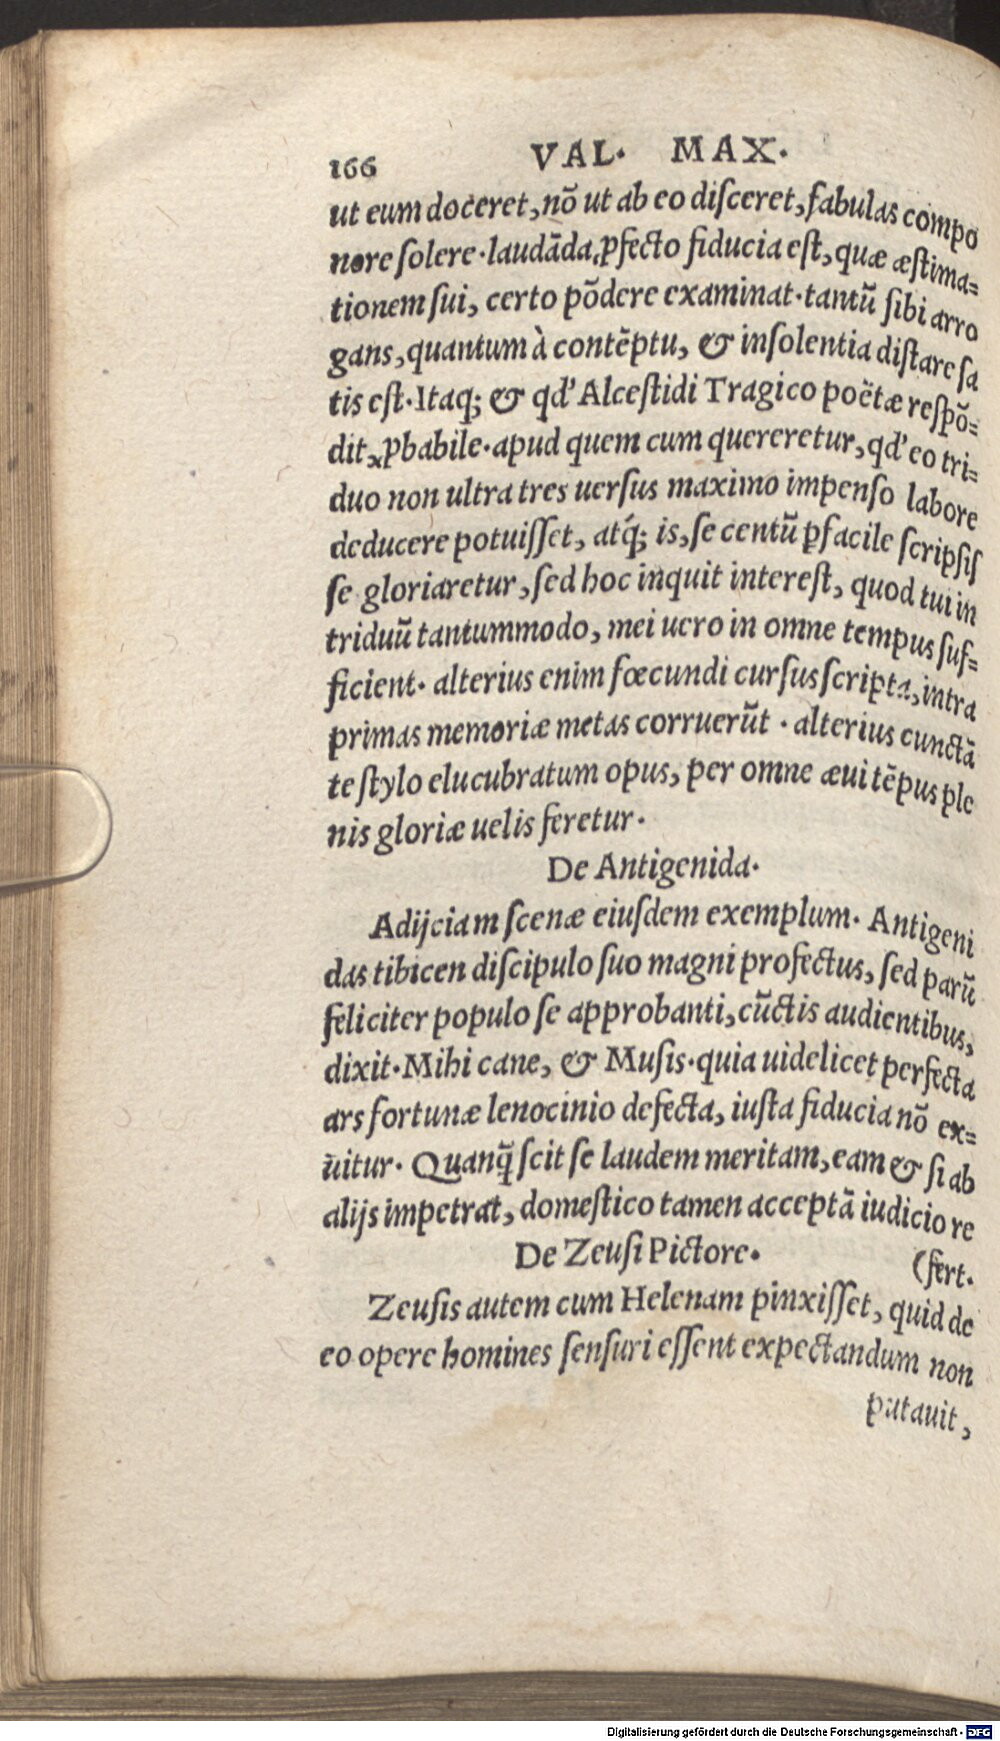 166 VAL· MAX·
ut eum doceret, nõ ut ab eo diſceret, fabulas compo
nere ſolere· laudãda ꝓfecto fiducia eſt, quæ æſtima=
tionem ſui, certo põdere examinat· tantũ ſibi arro
gans, quantum à contẽptu, & inſolentia diſtare ſa
tis eſt· Itaq; & qd' Alceſtidi Tragico poëtæ reſpõ=
dit, ꝓbabile· apud quem cum quereretur, qd' eo tri=
duo non ultra tres uerſus maximo impenſo labore
deducere potuiſſet, atq́; is, ſe centũ ꝑfacile ſcripſiſ
ſe gloriaretur, ſed hoc inquit intereſt, quod tui in
triduũ tantummodo, mei uero in omne tempus ſuf=
ficient· alterius enim fœcundi curſus ſcripta, intra
primas memoriæ metas corruerũt · alterius cunctã
te ſtylo elucubratum opus, per omne æui tẽpus ple
nis gloriæ uelis feretur·
De Antigenida·
Adijciam ſcenæ eiuſdem exemplum· Antigeni
das tibicen diſcipulo ſuo magni profectus, ſed parũ
feliciter populo ſe approbanti, cũctis audientibus,
dixit· Mihi cane, & Muſis· quia uidelicet perfecta
ars fortunæ lenocinio defecta, iuſta fiducia nõ ex=
uitur· Quanq̃ ſcit ſe laudem meritam, eam & ſi ab
alijs impetrat, domeſtico tamen acceptã iudicio re
De Zeuſi Pictore· (fert·
Zeuſis autem cum Helenam pinxiſſet, quid de
eo opere homines ſenſuri eſſent expectandum non
putauit,
Digitalisierung gefördert durch die Deutsche Forschungsgemeinschaft · DFG